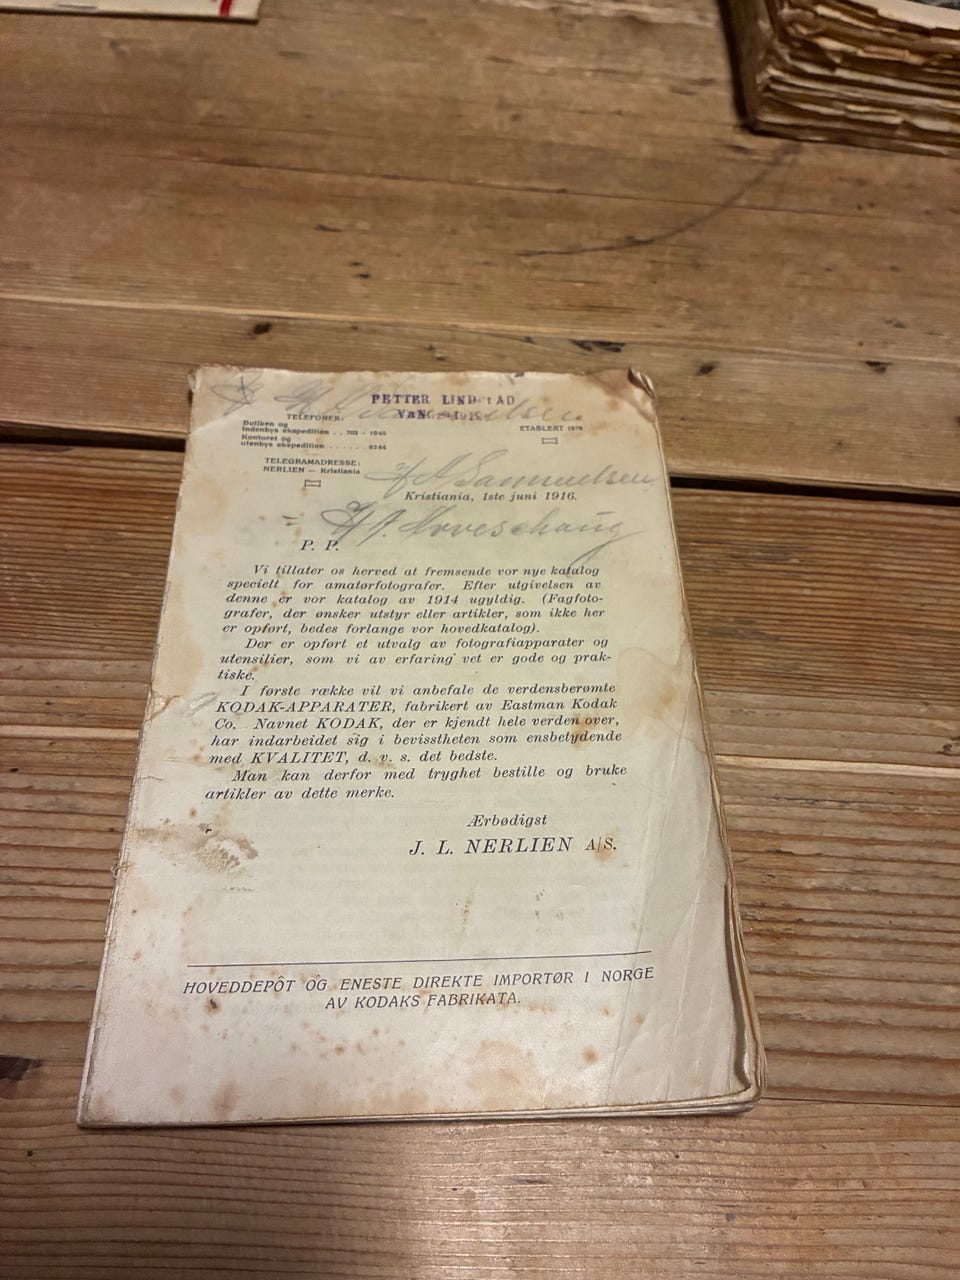 PETTER LINDSTAD
TELEFONER:
Butiken og
indenbys ekspedition . . 702 - 1040
Kontoret og
utenbys ekspedition . . . . . . .
ETABLERT
TELEGRAMADRESSE:
NERLIEN — Kristiania
Samuelsen
Kristiania, 1ste juni 1916.
P. P.
Vi tillater os herved at fremsende vor nye katalog
specielt for amatørfotografer. Efter utgivelsen av
denne er vor katalog av 1914 ugyldig. (Fagfoto-
grafer, der ønsker utstyr eller artikler, som ikke her
er opført, bedes forlange vor hovedkatalog).
Der er opført et utvalg av fotografiapparater og
utensilier, som vi av erfaring vet er gode og prak-
tiske.
I første række vil vi anbefale de verdensberømte
KODAK-APPARATER, fabrikert av Eastman Kodak
Co. Navnet KODAK, der er kjendt hele verden over,
har indarbeidet sig i bevisstheten som ensbetydende
med KVALITET, d. v. s. det bedste.
Man kan derfor med tryghet bestille og bruke
artikler av dette merke.
Ærbødigst
J. L. NERLIEN A/S.
HOVEDDEPÔT OG ENESTE DIREKTE IMPORTØR I NORGE
AV KODAKS FABRIKATA.